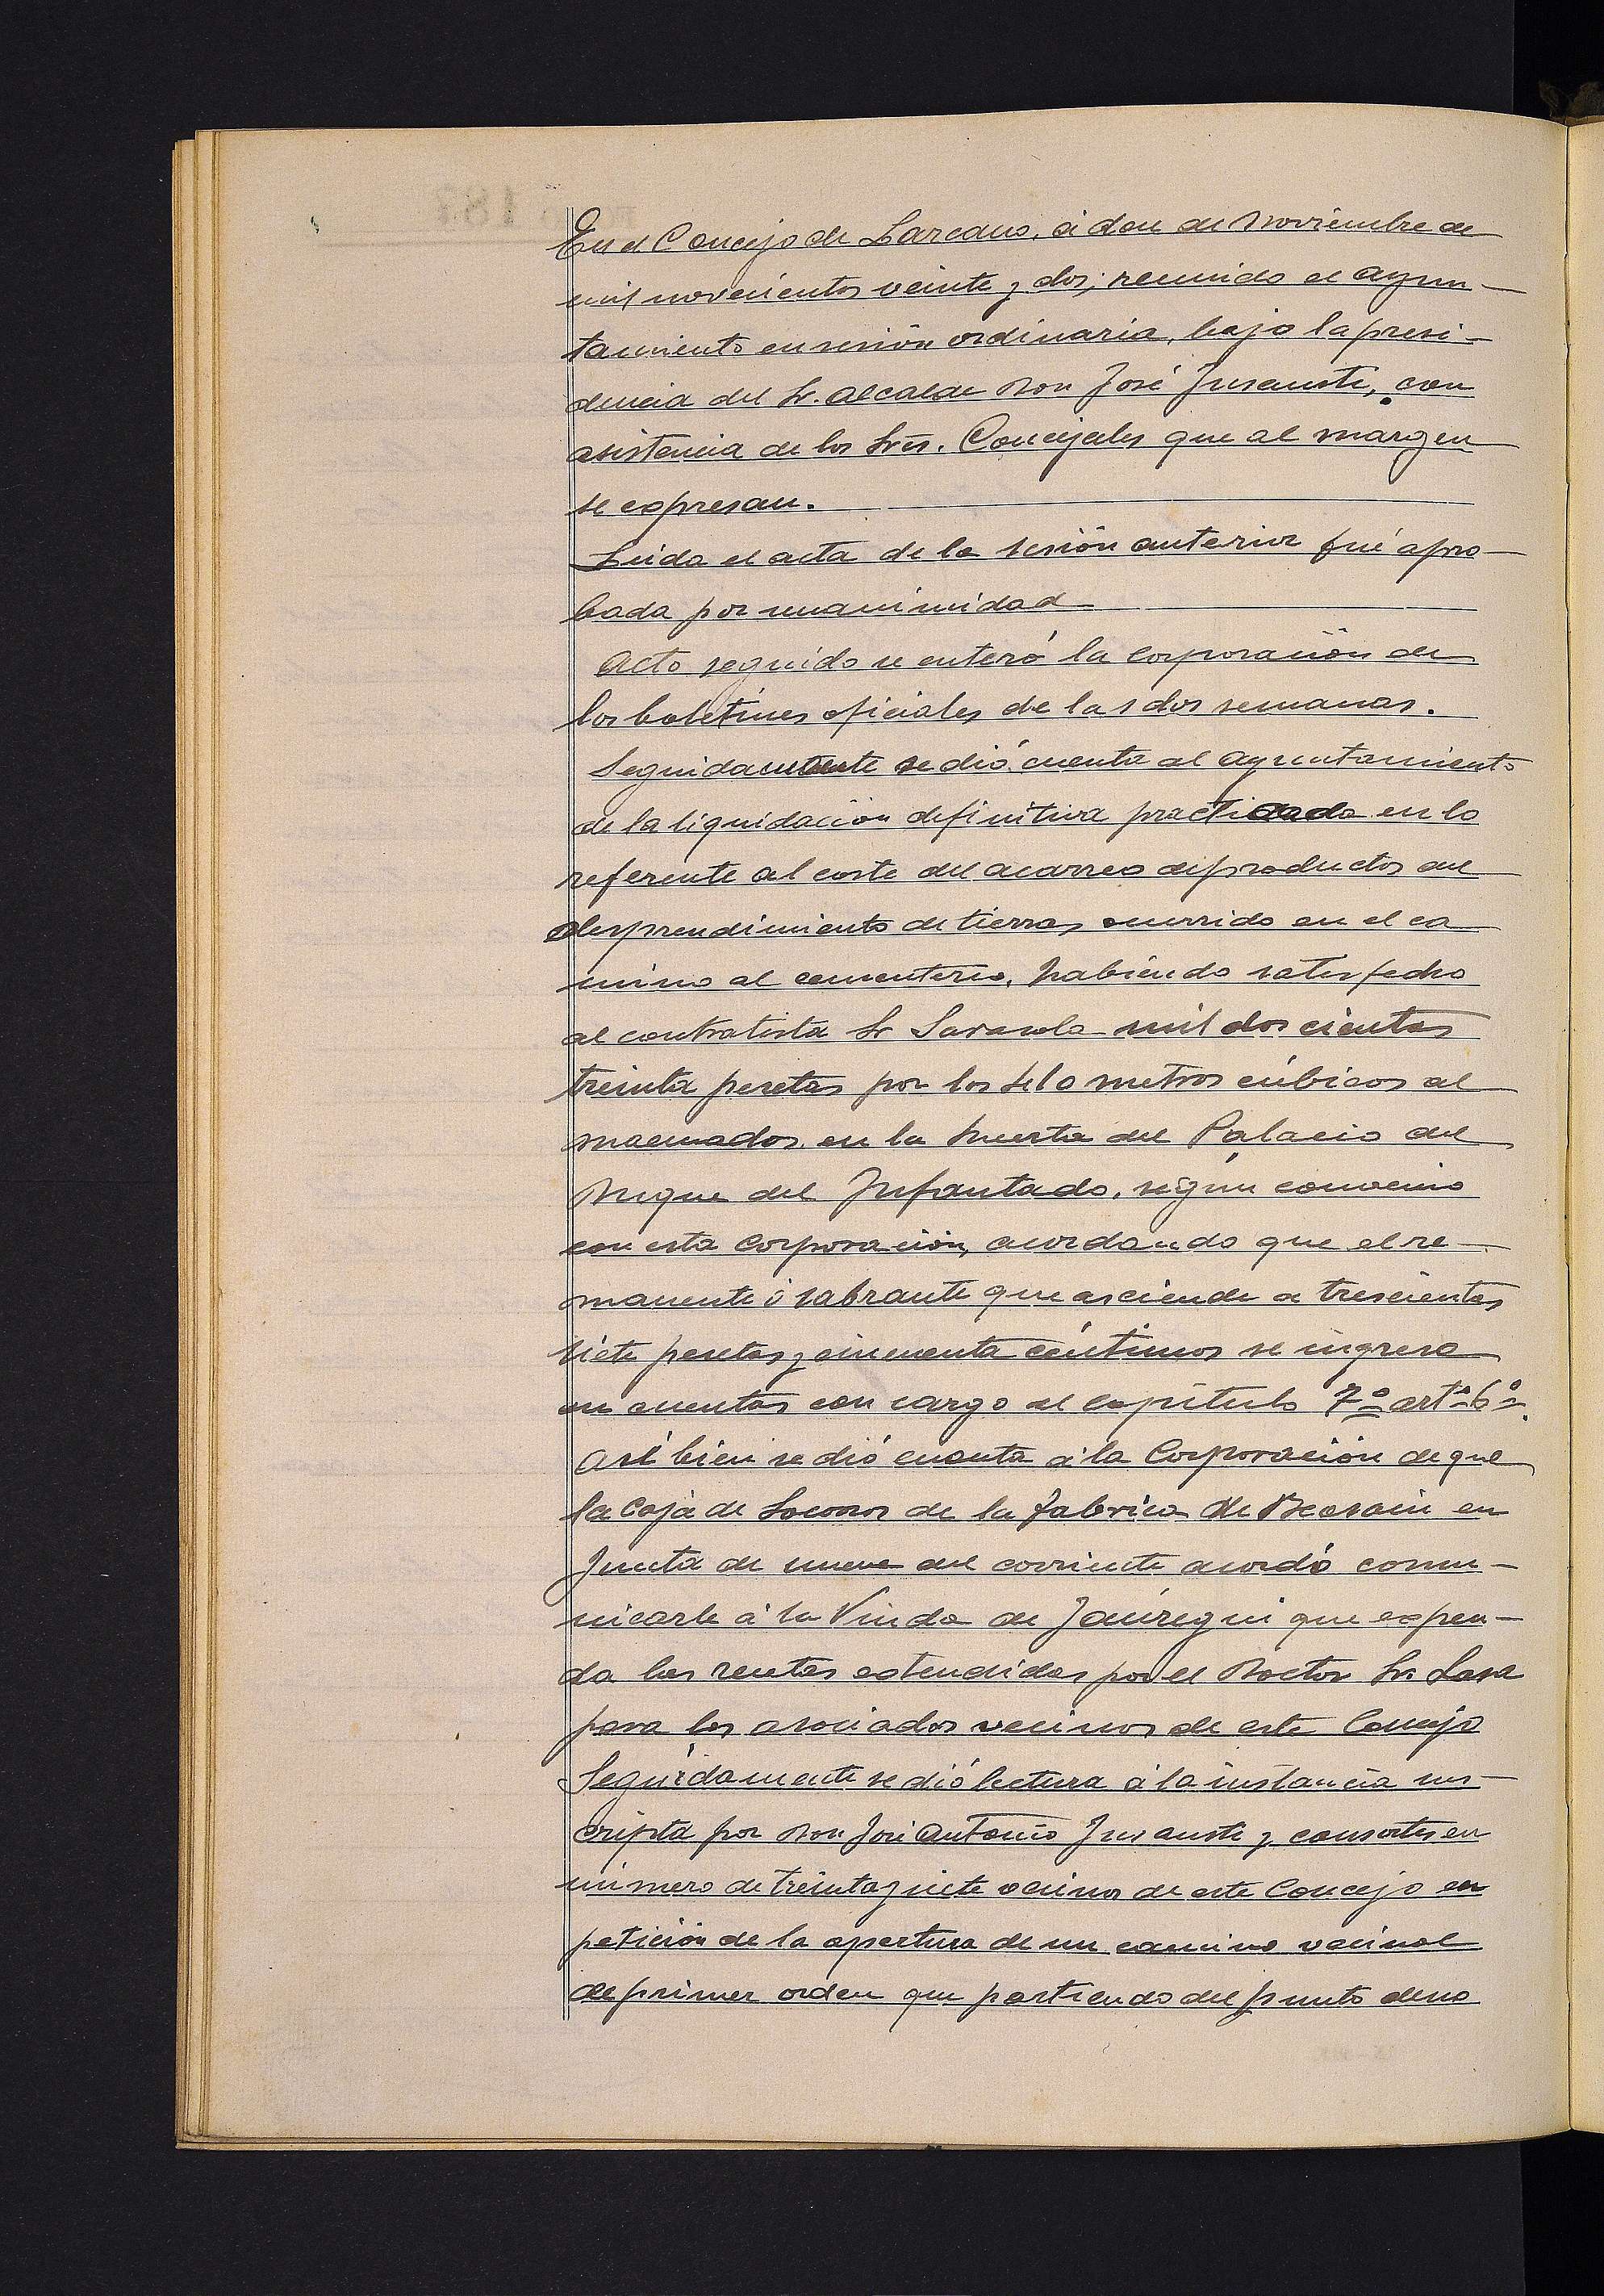 En el Concejo de Lazcano, á doce de Noviembre de
mil novecientos veinte y dos; reunido el ayun-
tamiento en sesión ordinaria, bajo la presi-
dencia del Sr. Alcalde Don José Insausti, con
asistencia de los Sres. Concejales que al margen
se expresan.
Leida el acta de la sesión anterior fué apro-
bada por unanimidad
Acto seguido se enteró la corporación de
los boletines oficiales de las dos semanas.
Seguidamente se dió cuenta al Ayuntamiento
de la liquidación definitiva practicada en lo
referente al coste del acarreo de productos del
desprendimiento de tierras ocurrido en el ca
mino al cementerio, habiendo satisfecho
al contratista Sr Sarasola mil doscientas
treinta pesetas por los metros cúbicos al
macenados en la huerta del Palacio del
Duque del Infantado, según convenio
con esta Corporación, acordando que el re-
manente ó sobrante que asciende a trescientas
siete pesetas y cincuenta céntimos se ingrese
en cuentas con cargo al capítulo 7º artº 6º.
Así bien se dió cuenta á la Corporación de que
la Caja de Socorros de la fabrica de Beasain en
Junta de nueve del corriente acordó comu-
nicarle á la Viuda de Jauregui que expen-
da las recetas extendidas por el Doctor Sr. Lasa
para los asociados vecinos de este Concejo
Seguidamente se dió lectura á la instancia sus-
cripta por Don José Antonio Insausti y consortes en
número de treinta y siete vecinos de este Concejo en
petición de la apertura de un camino vecinal
de primer orden que partiendo del punto deno